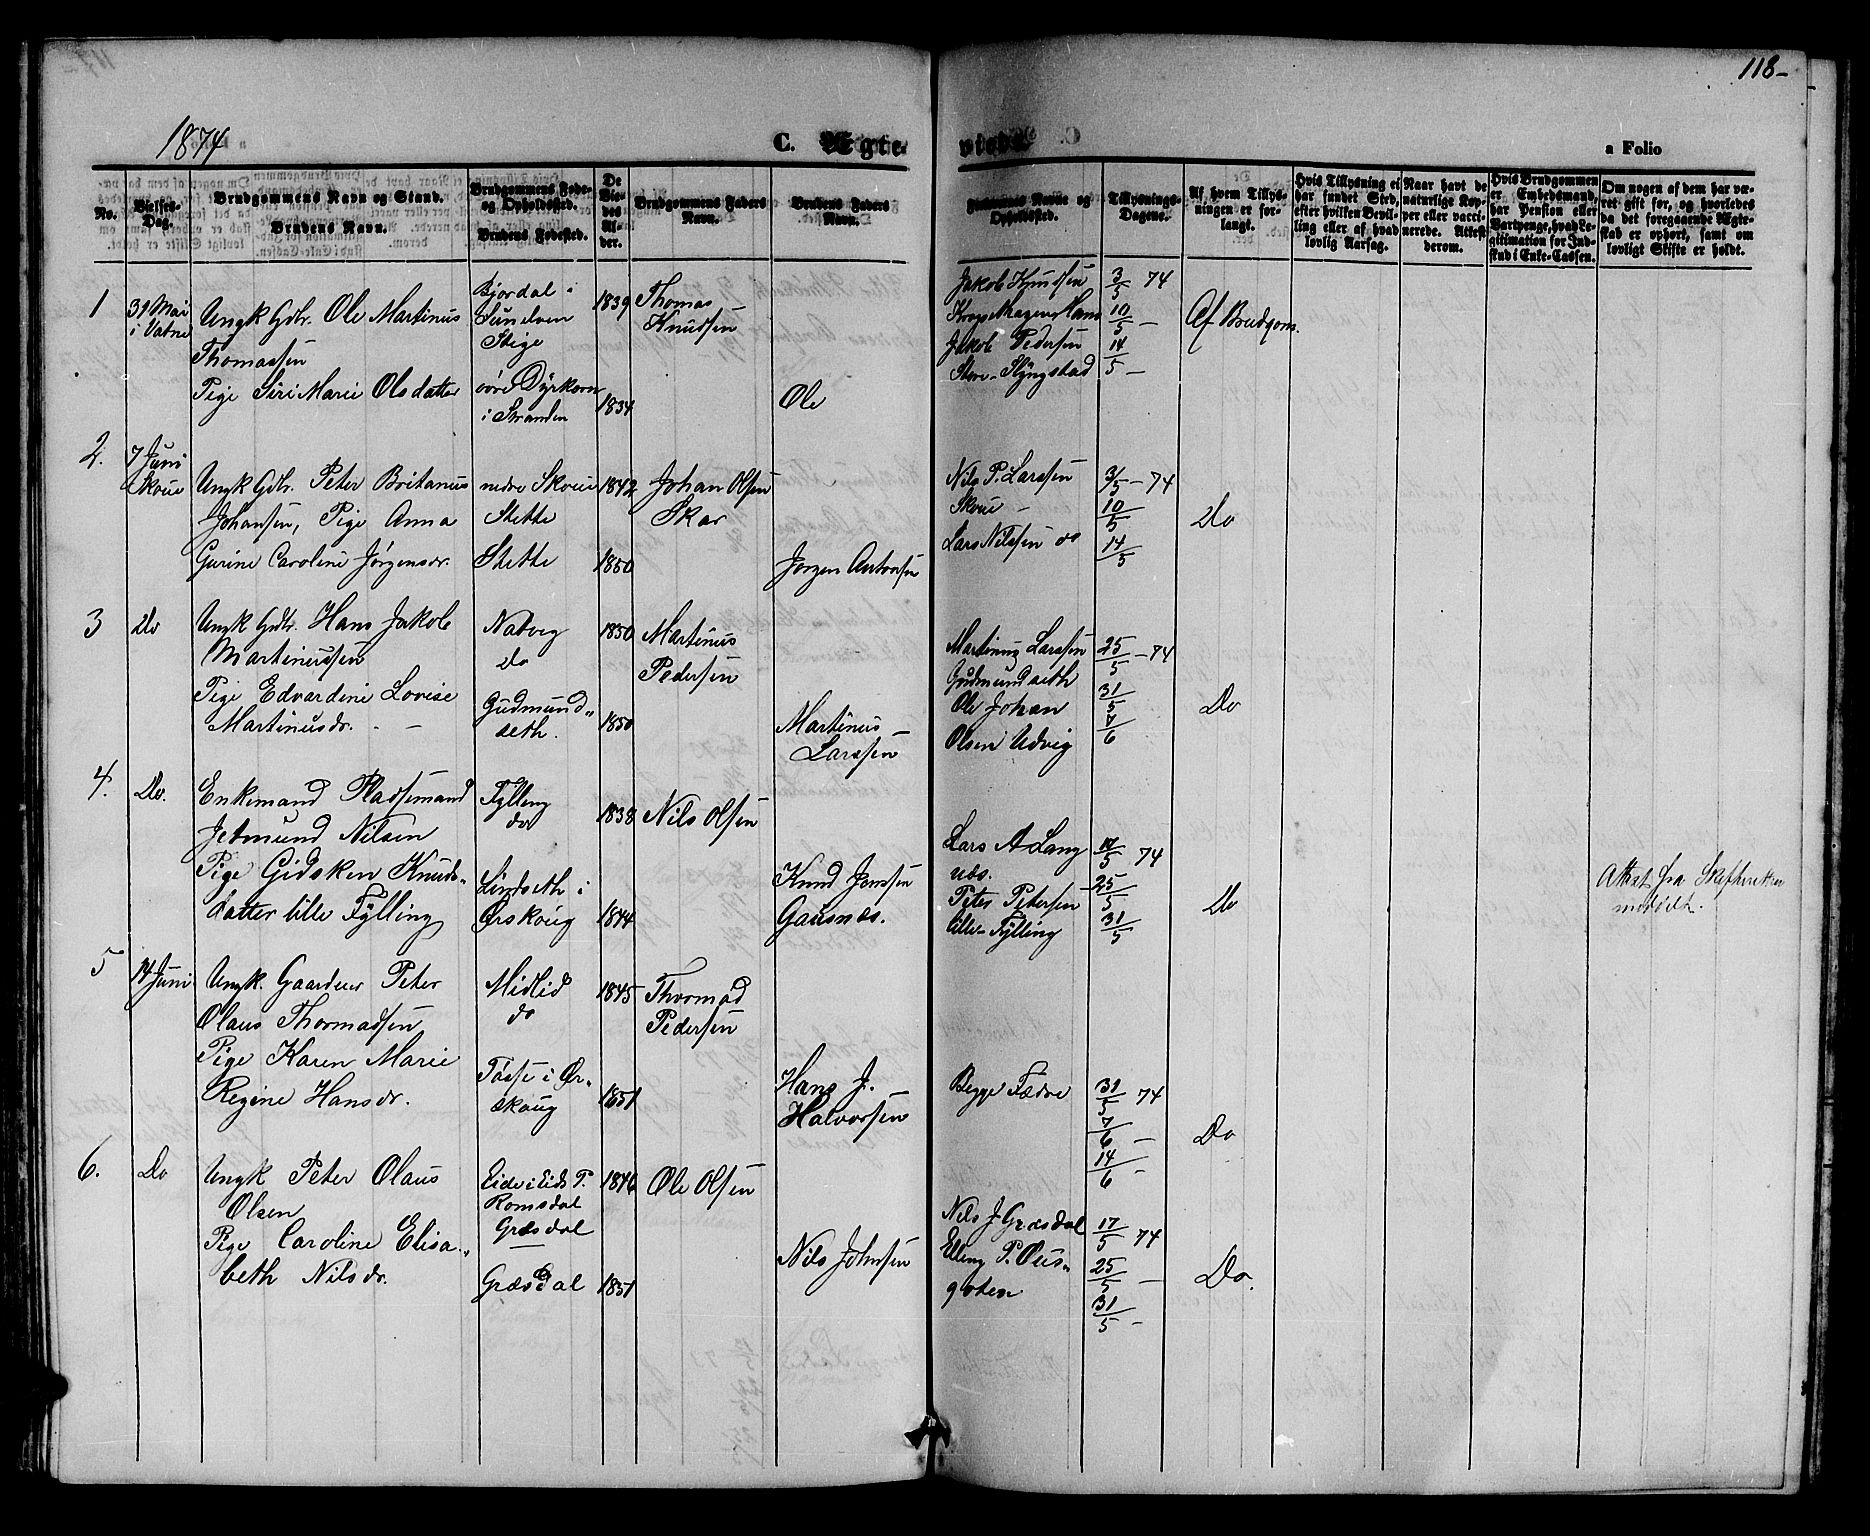 118-
1874
C. Ægte-
viede.
a Folio
No.
Vielses-Dag.
Brudgommens Navn og Stand.
Brudens Navn.
Brudgommens Føde- og Opholdssted.
Brudens Fødested.
De Viedes Alder.
Brudgommens Faders Navn.
Brudens Faders Navn.
Forlovernes Navne og Opholdssted.
Tillysnings-Dagene.
Af hvem Tillysningen er forlangt.
Hvis Tillysning ei har fundet Sted, efter hvilken Bevilling eller af hvad lovlig Aarsag.
Naar havt de naturlige Kopper eller vaccinerede. Attester derom.
Hvis Brudgommen er Embedsmand, har Pension eller Vartpenge, hvad Legitimation for Indskud i Enke-Cassen.
Om nogen af dem har været gift før, og hvorledes da det foregaaende Ægteskab er ophørt, samt om lovligt Skifte er holdt.
1
31 Mai
i Vatne
Ungk Gdbr. Ole Martinus
Thomassen
Pige Siri Marie Olsdatter
Bjordal i
Sunelven
Stige
øvre Dyrkorn
i Stranden
1839
1834
Thomas
Knudsen
Ole
Jakob Knudsen
Hans
Jakob Pedersen
Store-Slyngstad
3/5 74
10/5 -
14/5 -
Af Brudgom.
2.
7 Juni
Skoue
Ungk Gdbr. Peter Britanus
Johansen, Pige Anna
Gurine Caroline Jørgensdr.
nedre Skoue
Stette
Stette
1842
1850
Johan Olsen
Skar
Jørgen Antonsen
Nils P. Larssen
Skoue -
Lars Nilssen do
3/5 - 74
10/5
14/5
Do
3
Do
Ungk Gdbr. Hans Jakob
Martinussen
Pige Edvardine Lovise
Martinusdr. - -
Natvig
do
Gudmund-
seth.
1850
1850
Martinus
Pedersen
Martinus
Larssen
Martinus Larssen
Gudmundseth
Ole Johan
Olsen Udvig
25/5 - 74
31/5
7/6
Do
4.
Do.
Enkemand Pladsemand
Jetmund Nilsen
Pige Gidsken Knuds-
datter lille Fylling
Fylling
do
Lindseth i
Ørskoug
1838
1844
Nils Olsen
Knud Jonssen
Gausnæs.
Lars A Lang
næs.
Peter Petersen
lille-Fylling
17/5 74
25/5
31/5
Do
Attest fra Skifteretten
meddelt.
5
14 Juni
Ungk. Gaardbr Peter
Olaus Thormadsen
Pige Karen Marie
Regine Hansdr.
Midlid
do
Tøsse i Ør-
skoug
1845
1851
Thormod
Pedersen
Hans J.
Halvorsen
Begge Fædre
31/5 74
7/6 -
14/6 -
Do
6.
Do
Ungk Peter Olaus
Olsen
Pige Caroline Elisa-
beth Nilsdr.
Eide i Eids P.
Romsdal
Græsdal
Græsdal
1846
1851
Ole Olsen
Nils Johnsen
Nils J Græsdal
Elling P. Ous-
goten
17/5 74
25/5 -
31/5 -
Do.